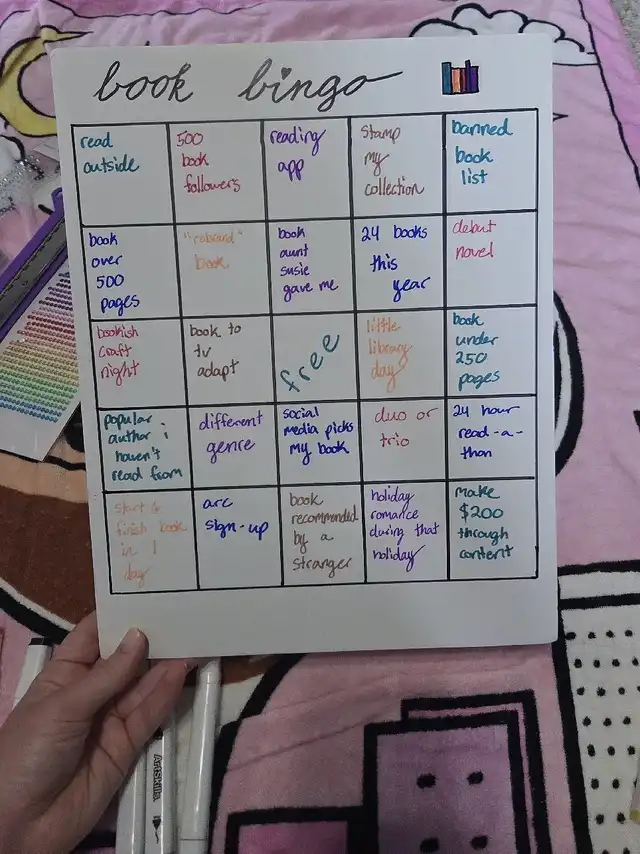 book bingo
read
outside
500
book
followers
reading
app
stamp
my
collection
banned
book
list
book
over
500
pages
"rebrand"
book
book
aunt
susie
gave me
24 books
this
year
debut
novel
bookish
craft
night
book to
tv
adapt
free
little
library
day
book
under
250
pages
popular
author i
haven't
read from
different
genre
social
media picks
my book
duo or
trio
24 hour
read-a-
thon
start &
finish book
in 1
day
arc
sign-up
book
recommended
by a
stranger
holiday
romance
during that
holiday
make
$200
through
content
ArtSkills